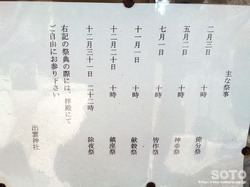 主な祭事
二月三日　十時　節分祭
五月二日　十時　神幸祭
七月一日　十時
十一月一日　十時　献穀祭
十二月一日　十時　鎮座祭
十二月三十一日　二十二時　除夜祭
右記の祭典の際には、拝殿にて
ご自由にお参り下さい
出雲神社
SOTC